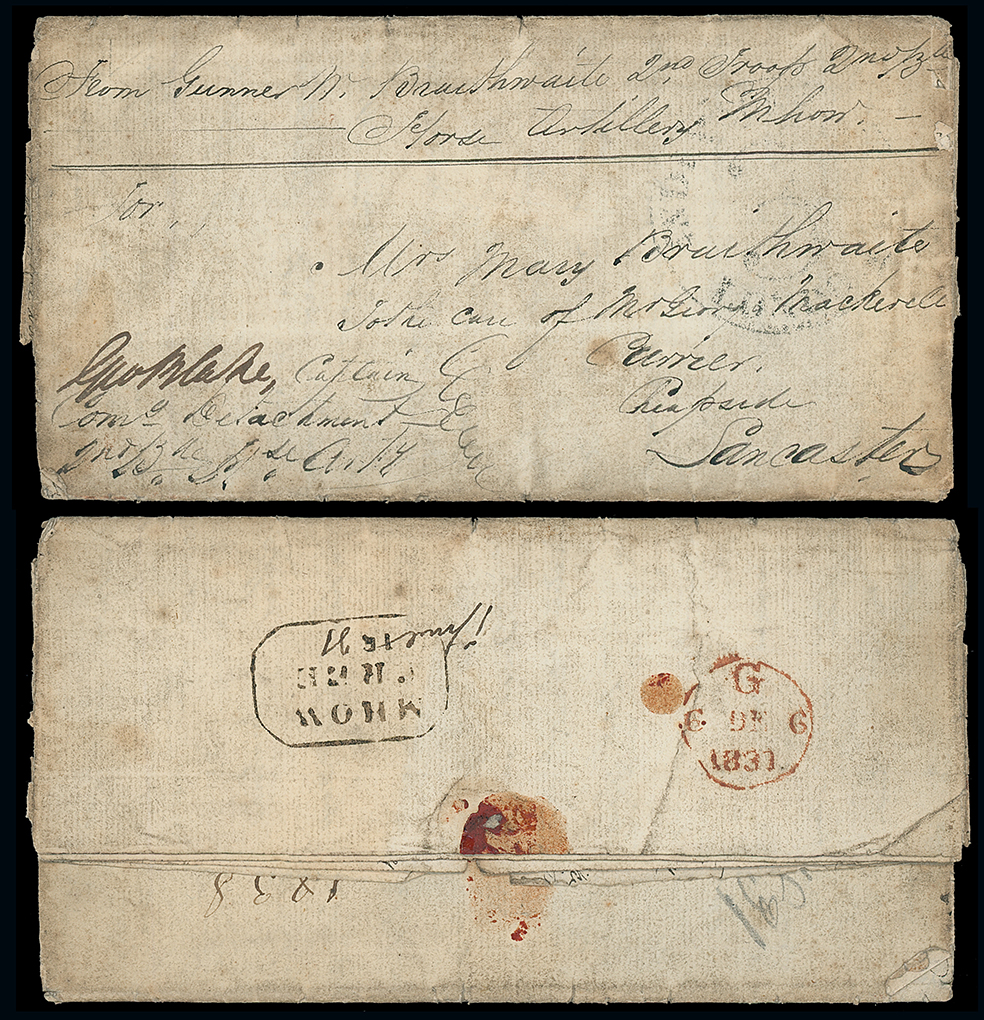 From Gunner W. Braithwaite 2nd Troop 2nd Bde
Horse Artillery Mhow.
For,
Mrs Mary Braithwaite
To the care of Mr Geo Mackerell
Currier.
Cheapside
Lancaster
Geo Blake, Captain
Comg Detachment
2nd Bde Hse Arty
MHOW
FREE
June 21
G
6 DE 6
1837
1838